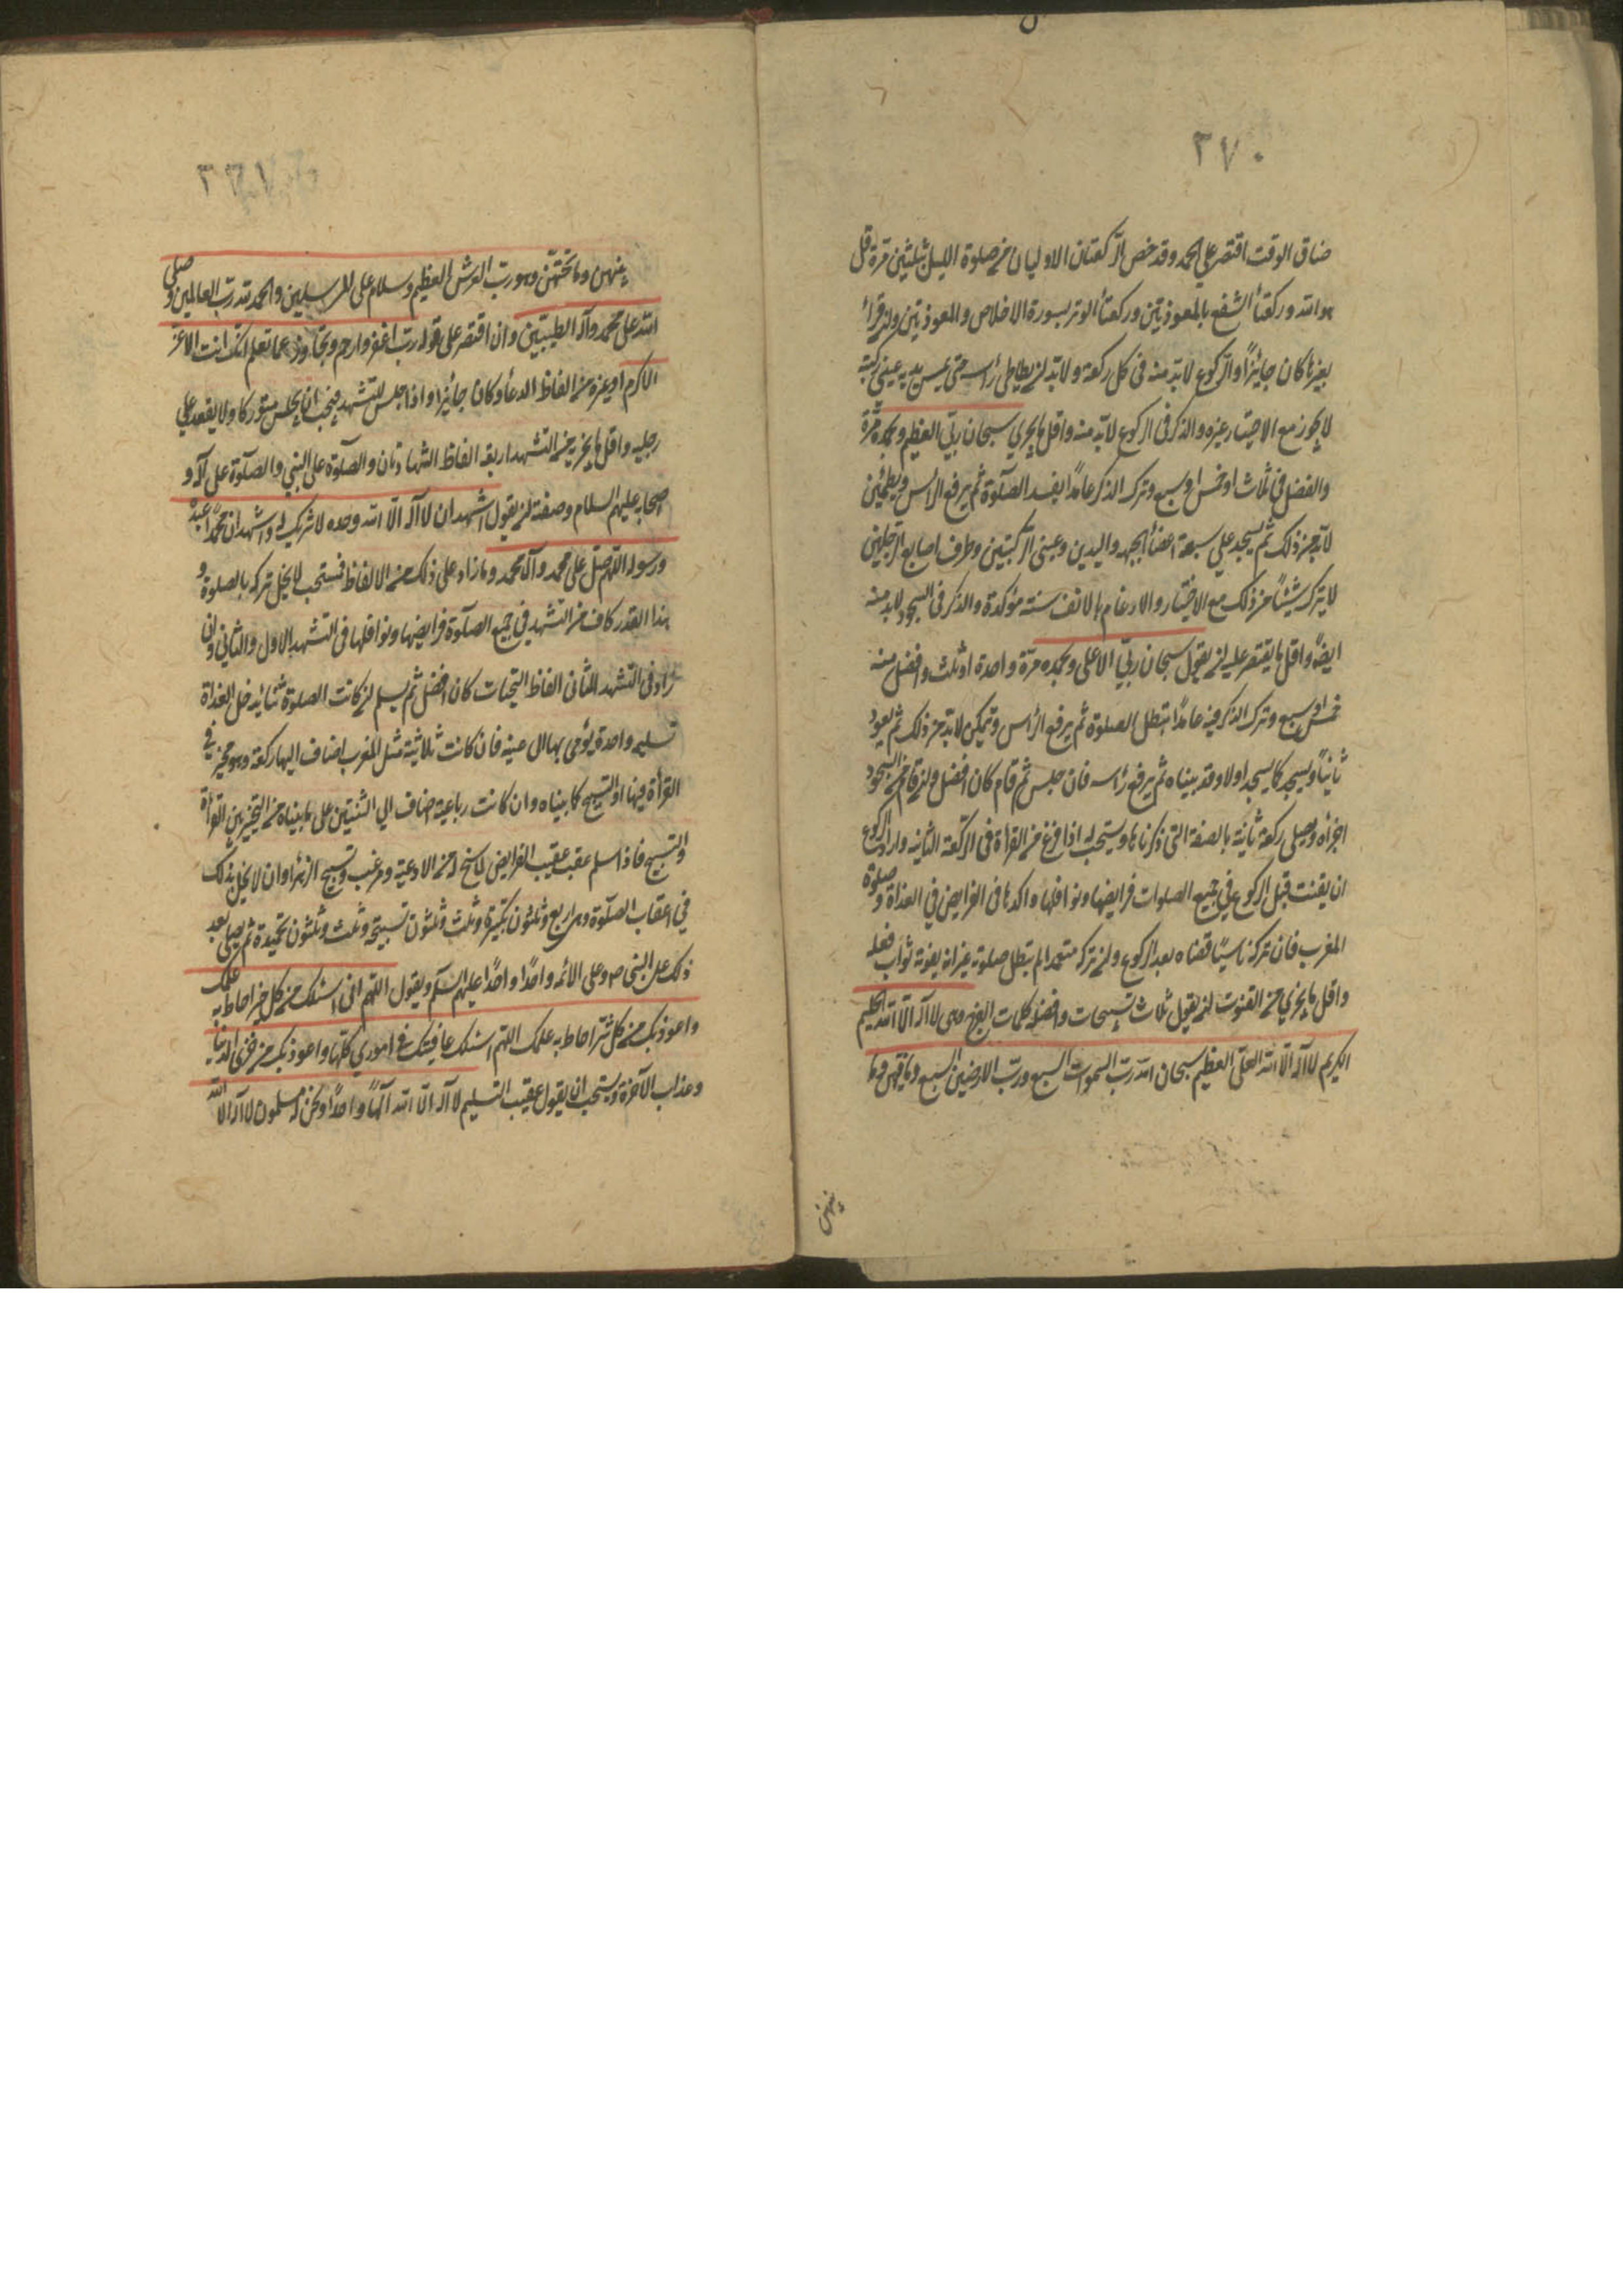 ٢٧٠
ضاق الوقت اقتصر علي الحمد وقد خص الركعتان الاوليان من صلوة الليل بثلثين مرة قل
هو الله وركعتا الشفع بالمعوذتين وركعتا الوتر بسورة الاخلاص والمعوذتين وان قرأ
بغيرها كان جايزا والركوع لابد منه فى كل ركعة ولابد ان يطاطى رأسه حتى يمس بيديه عينى ركبته
لا يجوز مع الاختيار غيره والذكر فى الركوع لابد منه واقل ما يجزي سبحان ربي العظيم وبحمده مرة
والفضل في ثلاث او خمس او سبع وترك الذكر عامدا يفسد الصلوة ثم يرفع الراس ويطمئن
لابد من ذلك ثم يسجد علي سبعة اعضأ الجبهه واليدين وعينى الركبتين وطرف اصابع الرجلين
لا يترك شيئا من ذلك مع الاختيار والارغام بالانف سنة مؤكدة والذكر فى السجود لابد منه
ايضا واقل ما يقتصر عليه ان يقول سبحان ربي الاعلى وبحمده مرة واحدة او ثلث وافضل منه
خمس او سبع وترك الذكر فيه عامدا تبطل الصلوة ثم يرفع الراس وتمكين لابد من ذلك ثم يعود
ثانيا ويسجد كما يسجد اولا وقد بيناه ثم يرفع راسه فان جلس ثم قام كان افضل وان قام من السجود
اجزأه ويصلى ركعة ثانية بالصفة التى ذكرناها ويستحب له اذا فرغ من القرأة فى الركعة الثانيه واراد الركوع
ان يقنت قبل الركوع في جميع الصلوات فرايضها ونوافلها واكدها فى الفرايض في الغداة وصلوة
المغرب فان تركه ناسيا قضاه بعد الركوع وان تركه متعمدا لم تبطل صلوته غير انه يفوته ثواب فعله
واقل ما يجزي من القنوت ان يقول ثلاث تسبيحات وافضله كلمات الفرج وهى لا اله الا الله الحليم
الكريم لا اله الا الله العلي العظيم سبحان الله رب السموات السبع ورب الارضين السبع وما فيهن وما
بينهن
بينهن وما تحتهن وهو رب العرش العظيم وسلام على المرسلين والحمد لله رب العالمين وصلى
الله على محمد وآله الطيبين وان اقتصر على قوله رب اغفر وارحم وتجاوز عما تعلم انك انت الاعز
الاكرم او غيره من الفاظ الدعأ وكان جائزا واذا جلس للتشهد فيجب ان يجلس متوركا ولا يقعد علي
رجليه واقل ما يجزيه من التشهد اربعة الفاظ الشهادتان والصلوة على النبي والصلوة على آله و
اصحابه عليهم السلام وصفته ان يقول اشهد ان لا اله الا الله وحده لا شريك له واشهد ان محمدا عبده
ورسوله اللهم صل على محمد وآل محمد وما زاد على ذلك من الالفاظ فمستحب لا يخل تركه بالصلوة و
هذا القدر كاف من التشهد في جميع الصلوة فرايضها ونوافلها فى التشهد الاول والثاني وان
زاد فى التشهد الثانى الفاظ التحيات كان افضل ثم يسلم ان كانت الصلوة ثنائيه مثل الغداة
تسليمه واحدة يؤمى بها الى يمينه فان كانت ثلاثية مثل المغرب اضاف اليها ركعة وهو مخير في
القرأة فيها او التسبيح كما بيناه وان كانت رباعية اضاف الي الثنتين على ما بيناه من التخيير بين القرأة
والتسبيح فاذا سلم عقب عقيب الفرايض لما سنح له من الادعية ومرغب وتسبيح الزهرأ وان لا يخل بذلك
في اعقاب الصلوة وهى اربع وثلثون تكبيرة وثلث وثلثون تسبيحة وثلث وثلثون تحميدة ثم يصلى بعد
ذلك على النبى ص وعلى الائمه واحدا واحدا عليهم السلام ويقول اللهم انى اسئلك من كل خير احاط به علمك
واعوذ بك من كل شر احاط به علمك اللهم اسئلك عافيتك في اموري كلها واعوذ بك من خزى الدنيا
وعذاب الآخرة ويستحب ان يقول عقيب التسليم لا اله الا الله الها واحدا ونحن له مسلمون لا اله الا الله